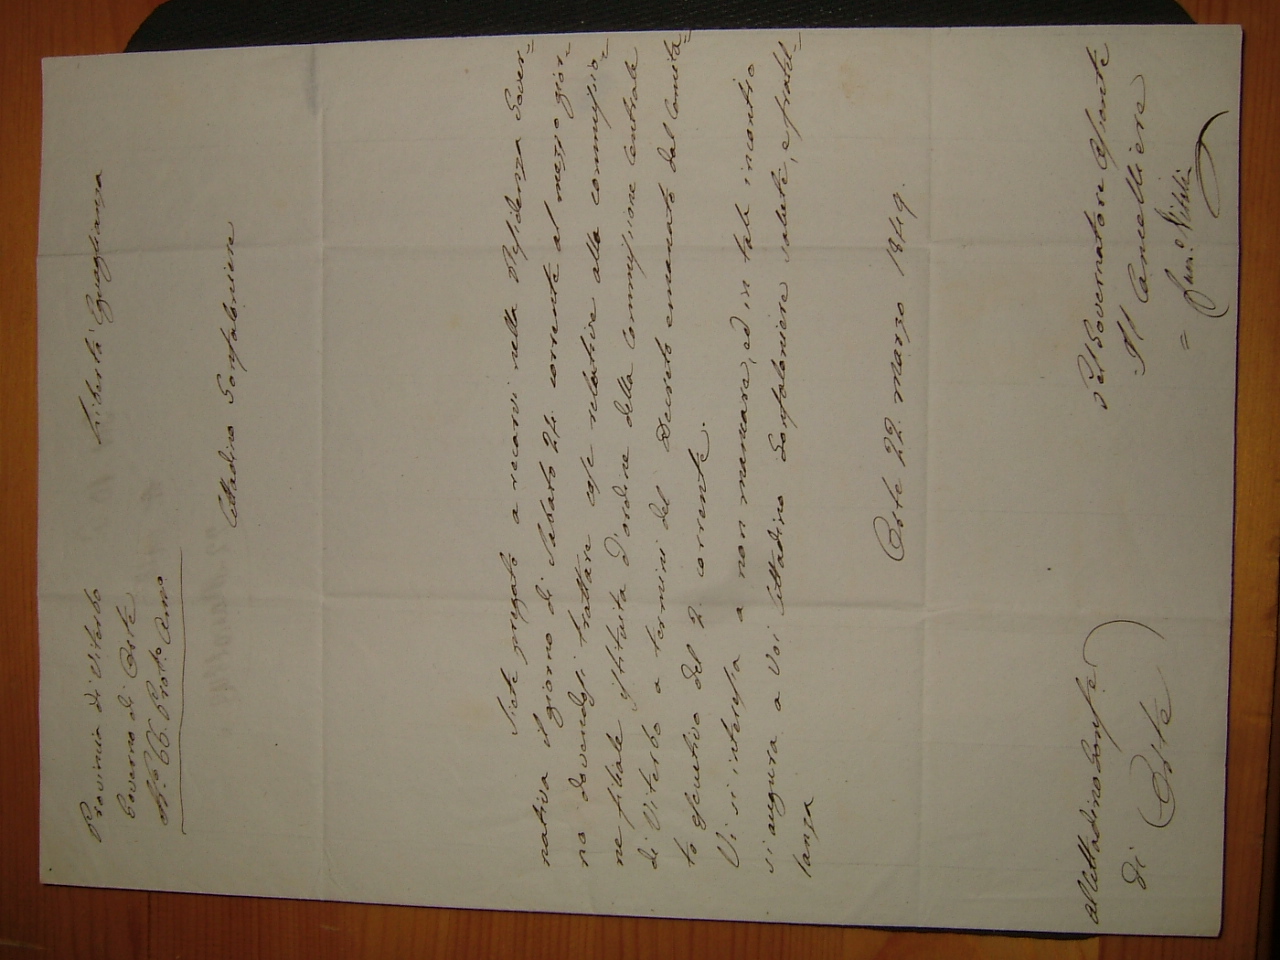 Provincia di Viterbo
Governo di Orte
N.º 66. Prot.º Anno
Libertà Eguaglianza
Cittadino Gonfaloniere
Siete pregato a recarvi nella Residenza Gover=
nativa il giorno di Sabato 24. corrente al mezzo gior=
no dovendosi trattare cose relative alla commissio=
ne filiale istituita d'ordine della Commissione Centrale
di Viterbo a termini del Decreto emanato dal Comita=
to esecutivo del 2. corrente.
Vi si interessa a non mancare, ed in tale incontro
si augura a Voi Cittadino Gonfaloniere salute, e fratel=
lanza
Orte 22. Marzo 1849.
Pel Governatore
Il Cancelliere
= Vitali
Al Cittadino Gonfe
di Orte